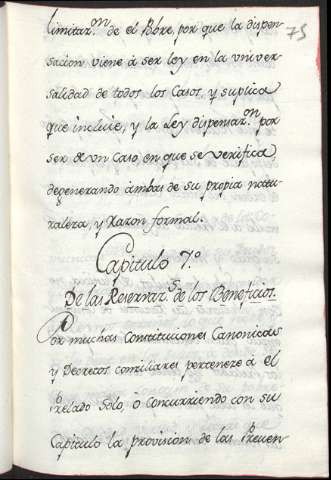 75
limitaz.on de el Bbre, por que la dispen-
sacion viene á ser ley en la univer
salidad de todos los Casos, y suplica
que incluie, y la Ley dispensaz.on por
ser de un Caso, en que se verifica,
degenerando ambas de su propia natu-
raleza, y Razon formal.
Capitulo 7.º
De las Reservaz.s de los Beneficios.
Por muchas Constituciones Canonicas
y Decretos conciliares pertenece á el
Prelado Solo, ó concurriendo con su
Capitulo la provision de las Preven